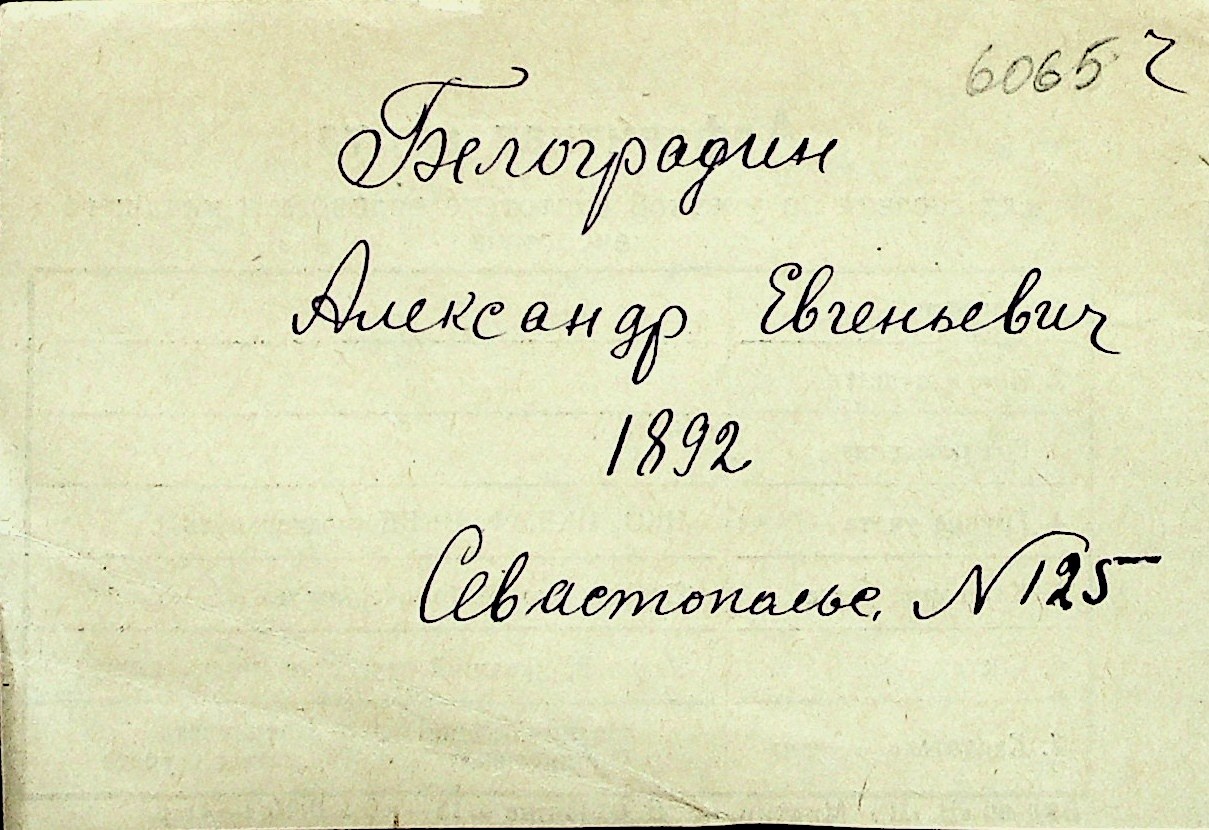 6065 ч
Белоградин
Александр Евгеньевич
1892
Севастополье. N 125